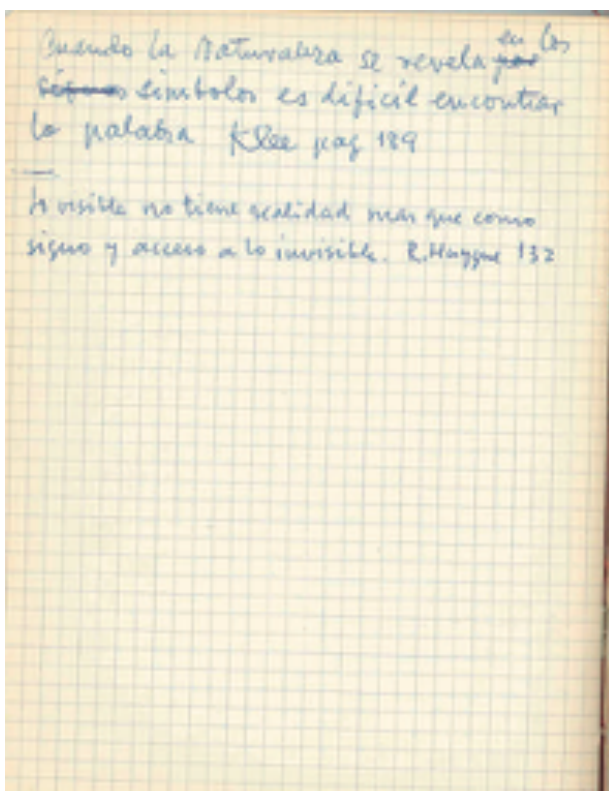 Cuando la Naturaleza se revela por en los
signos simbolos es dificil encontrar
la palabra Klee pag 189
lo visible no tiene realidad mas que como
signo y acceso a lo invisible. R. Huyghe 132